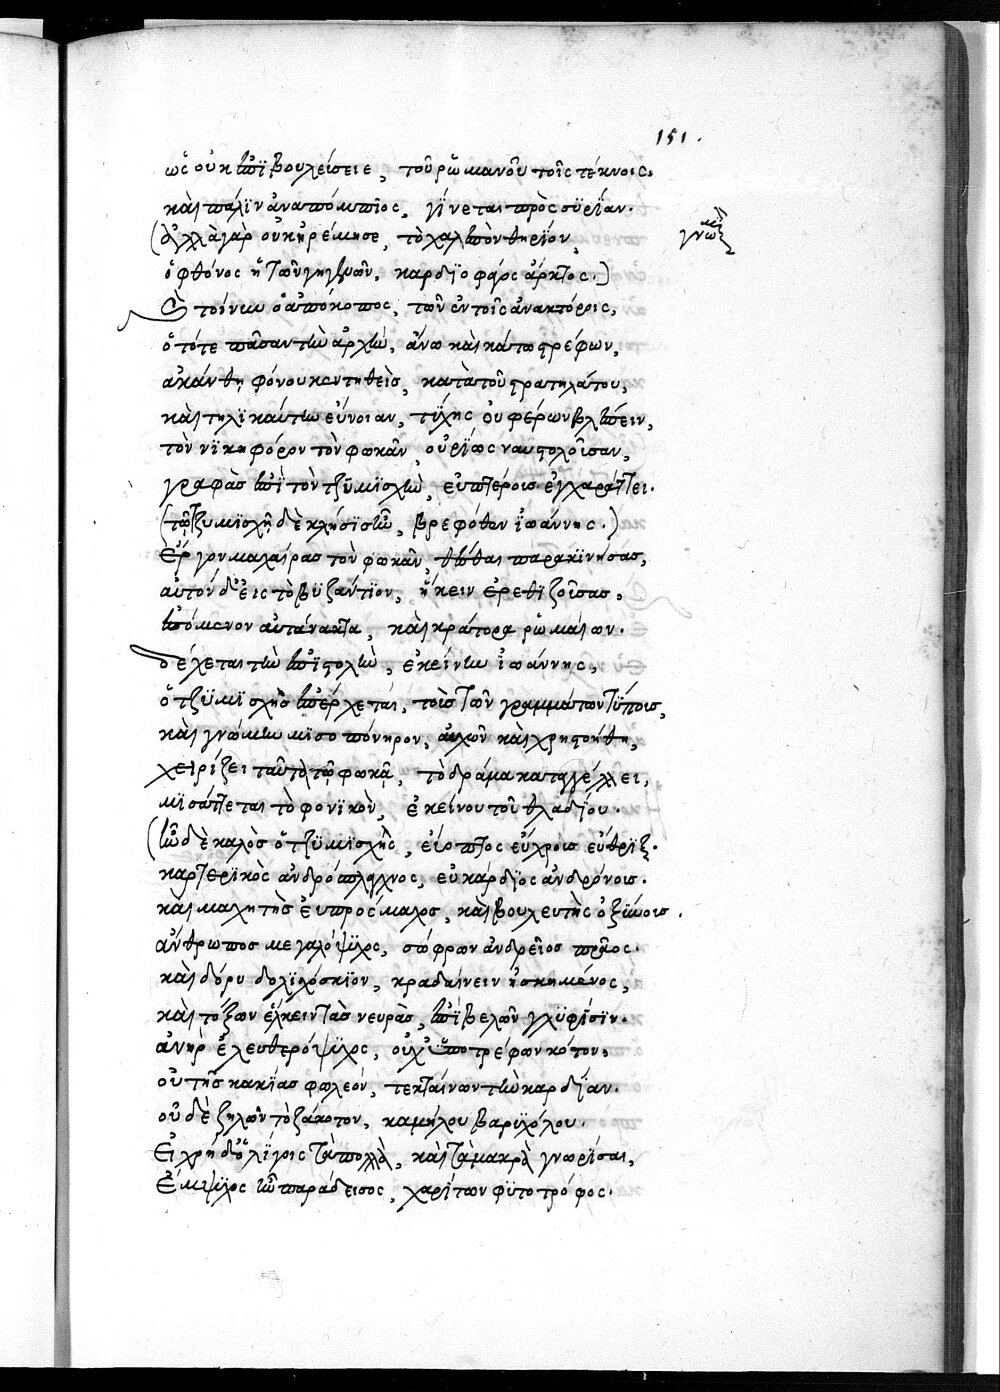 151.
ὡς οὐκ ἐπϊβουλείσειε, τοῦ ῥωμανοῦ τοῖς τέκνοις.
καὶ πάλϊν ἀναπόμπϊος, γίνεται πρὸς συρΐαν.
(ἀλλὰ γὰρ οὐκ ἠρέμησε, τὸ χαλεπὸν θηρΐον,
γνώμη
ὁ φθόνος ἡ τῶν γηγενῶν, καρδϊοφάγος ἄρκτος.)
ὁ τοίνυν ὁ ἀπόκοπος, τῶν ἐν τοῖς ἀνακτόροις,
ὁ τότε πᾶσαν τὴν ἀρχὴν, ἄνω καὶ κάτω στρέφων,
ἀκάνθη φόνου κεντηθεὶς, κατὰ τοῦ στρατηλάτου,
καὶ τηλϊκαύτην εὔνοιαν, τύχης οὐ φέρων βλέπειν,
τὸν νϊκηφόρον τὸν φωκᾶν, οὐρΐως ναυστολοῦσαν,
γραφὰς ἐπὶ τὸν τζϋμϊσχὴν, εὐπτέροις ἐγχαράττει.
(τῷ τζυμϊσχῇ δὲ κλήσϊς ἦν, βρεφόθεν ἰωάννης.)
ἔργον μαχαίρας τὸν φωκᾶν, θέσθαι παρακϊνήσας,
αὐτὸν δ' εἰς τὸ βϋζάντϊον, ἥκειν ἐρεθϊζούσας.
ἐσόμενον αὐτάνακτα, καὶ κράτορα ῥωμαίων.
δέχεται τὴν ἐπϊστολὴν, ἐκείνην ἰωάννης,
ὁ τζϋμϊσχῆς ἐπέρχεται, τοῖς τῶν γραμμάτων τύποις,
καὶ γνώμην μϊσοπόνηρον, αὐχῶν καὶ χρηστοήθη,
χειρίζει ταῦτα τῷ φωκᾷ, τὸ δράμα καταγγέλλει,
μϊσάττεται τὸ φονϊκὸν, ἐκείνου τοῦ θλαδίου.
(ἦν δὲ καλὸς ὁ τζϋμϊσχῆς, εὔοπτος εὔχροις εὔθρϊξ.
καρτερϊκὸς ἀνδρόσπλαγχνος, εὐκάρδϊος ἀνδρόνοις.
καὶ μαχητὴς εὐπρόσμαχος, καὶ βουλευτὴς ὀξύνοις.
ἄνθρωπος μεγαλόψϋχος, σώφρων ἀνδρεῖος πρᾶος.
καὶ δόρυ δολϊχόσκϊον, κραδαίνειν ἠσκημένος,
καὶ τόξων ἕλκειν τὰς νευρὰς, ἐπὶ βελῶν γλϋφΐσϊν.
ἀνὴρ ἐλευθερόψϋχος, οὐχ ὑποτρέφων κότον,
οὐ τῆς κακΐας φωλεὸν, τεκταίνων τὴν καρδΐαν.
οὐδὲ ζηλῶν τὸ ζάκοτον, καμήλου βαρϋχόλου.
εἰ χρὴ δ' ὀλΐγοις τὰ πολλὰ, καὶ τὰ μακρὰ γνωρίσαι,
ἔμψϋχος ἦν παράδεισος, χαρίτων φϋτοτρόφος.